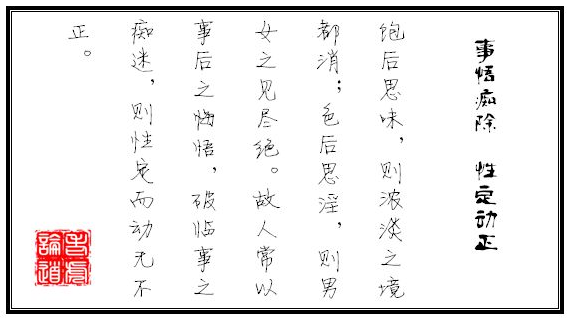 事悟痴除 性定动正
饱后思味，则浓淡之境
都消；色后思淫，则男
女之见尽绝。故人常以
事后之悔悟，破临事之
痴迷，则性定而动无不
正。
論道